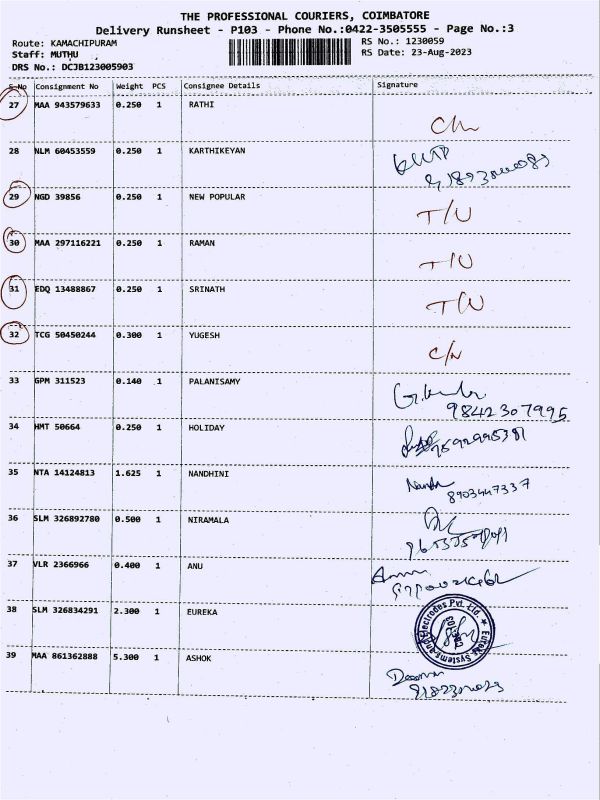 THE PROFESSIONAL COURIERS, COIMBATORE
Delivery Runsheet - P103 - Phone No.:0422-3505555 - Page No.:3
Route: KAMACHIPURAM
RS No.: 1230059
Staff: MUTHU
RS Date: 23-Aug-2023
DRS No.: DCJB123005903
S.No Consignment No Weight PCS Consignee Details Signature
27 MAA 943579633 0.250 1 RATHI
28 NLM 60453559 0.250 1 KARTHIKEYAN
29 NGD 39856 0.250 1 NEW POPULAR
T/U
30 MAA 297116221 0.250 1 RAMAN
T/U
31 EDQ 13488867 0.250 1 SRINATH
T/U
32 TCG 50450244 0.300 1 YUGESH
C/N
33 GPM 311523 0.140 1 PALANISAMY
9842307995
34 HMT 50664 0.250 1 HOLIDAY
35 NTA 14124813 1.625 1 NANDHINI
8903447337
36 SLM 326892780 0.500 1 NIRAMALA
37 VLR 2366966 0.400 1 ANU
38 SLM 326834291 2.300 1 EUREKA
Eureka Systems and Electrodes Pvt. Ltd.
39 MAA 861362888 5.300 1 ASHOK